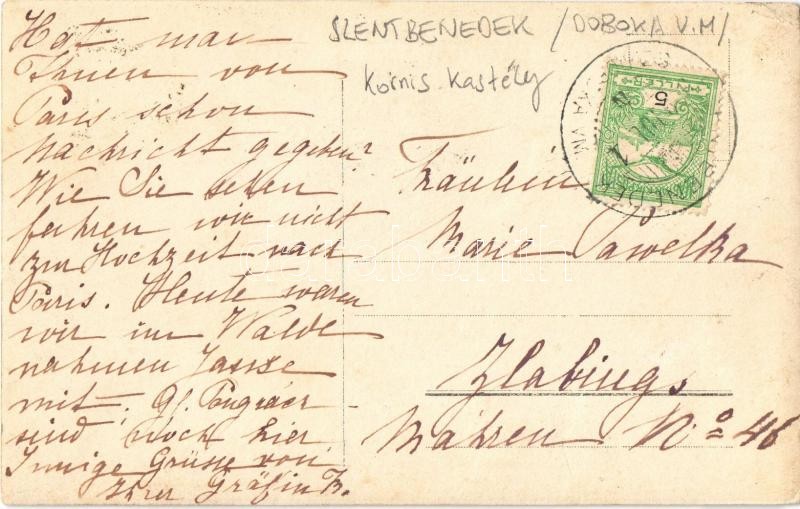 SZENTBENEDEK /DOBOKA V.M/
Kornis Kastély
FILLÉR
5
Hat man
Ihnen von
Paris schon
Nachricht gegeben?
Wie Sie sehen
fahren wir nicht
zur Hochzeit nach
Paris. Heute waren
wir im Walde
nahmen Jausse
mit. Gf. Pongrácz
sind noch hier
Innige Grüsse von
Ihrer Gräfin K.
Fräulein
Marie Pawelka
Zlabings
Mähren No 46